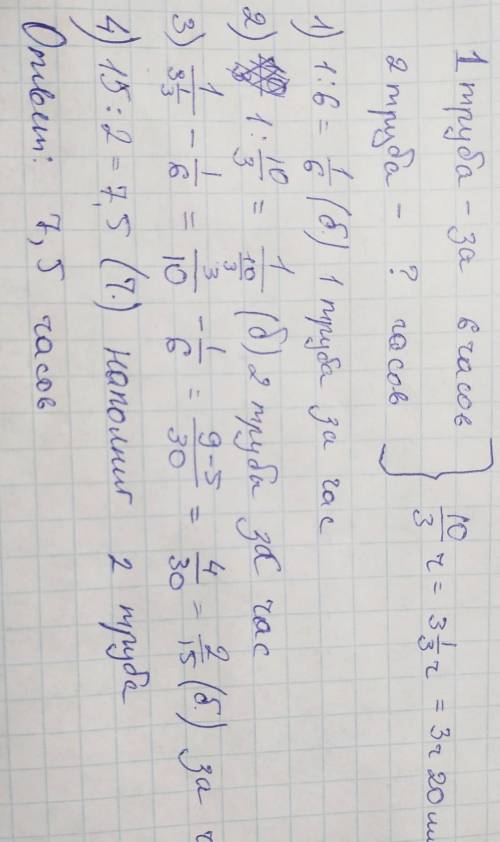 1 труба - за 6 часов
2 труба - ? часов } 10/3 ч = 3 1/3 ч = 3ч 20 ми
1) 1:6 = 1/6 (б.) 1 труба за час
2) 1: 10/3 = 1/(10/3) (б) 2 трубы за час
3) 1/(3 1/3) - 1/6 = 3/10 - 1/6 = (9-5)/30 = 4/30 = 2/15 (б.) за ч
4) 15:2 = 7,5 (ч.) наполнит 2 труба
Ответ: 7,5 часов